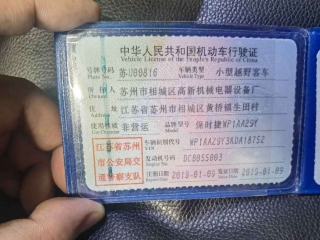 中华人民共和国机动车行驶证
Vehicle License of the People's Republic of China
号牌号码 苏U00816 车辆类型 小型越野客车
Plate No. Vehicle Type
所有人 苏州市相城区高新机电器设备厂
Owner
住址 江苏省苏州市相城区黄桥镇生田村
Address
使用性质 非营运 品牌型号 保时捷WP1AA29Y
江苏省苏州
市公安局交
通警察支队
车辆识别代号 WP1AA29Y3KDA18752
VIN
发动机号码 DCB055003
注册日期 2019-01-09 发证日期 2019-01-09